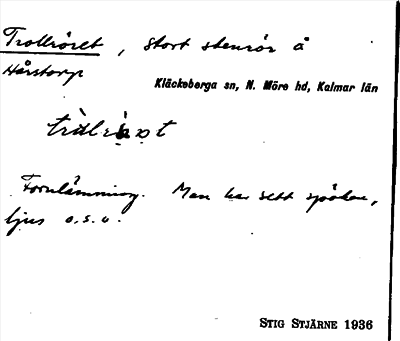 Trollröset, stort stenrör å
Hårstorp
Kläckeberga sn, N. Möre hd, Kalmar län
Fornlämning. Man har sett spöken,
ljus o.s.v.
STIG STJÄRNE 1936